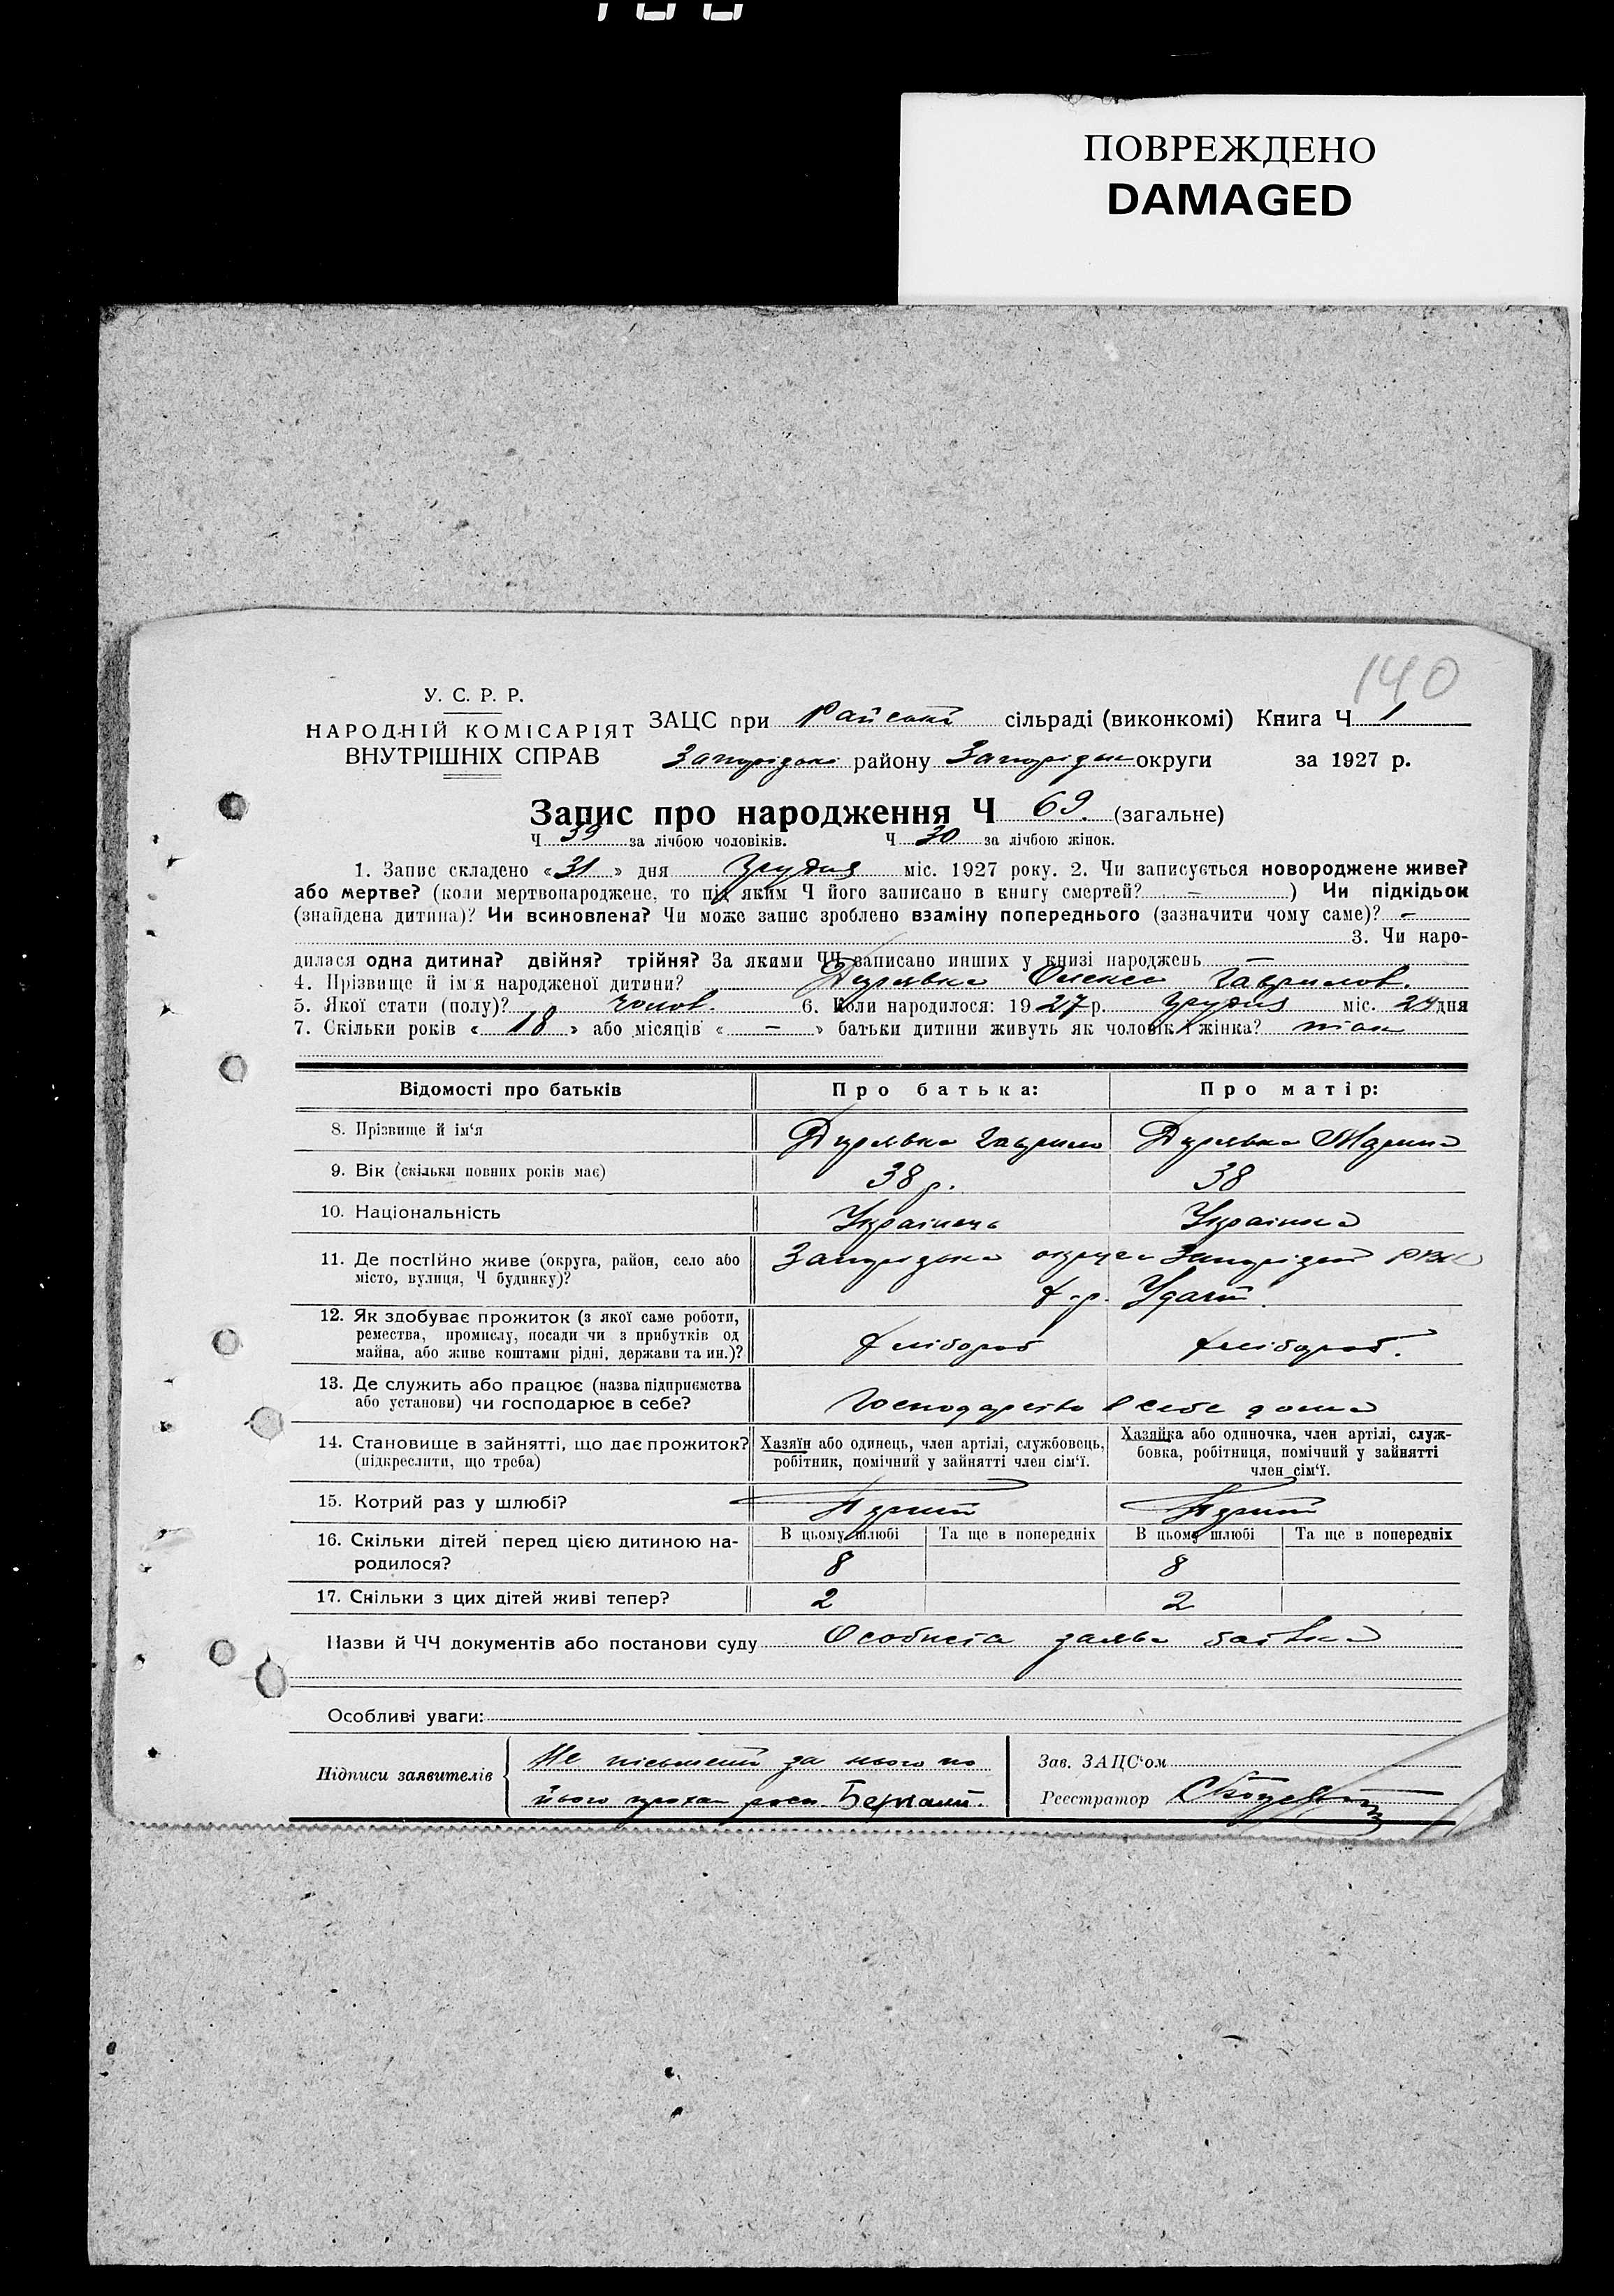 ПОВРЕЖДЕНО
DAMAGED
140
У. С. Р. Р.
НАРОДНІЙ КОМІСАРІЯТ
ВНУТРІШНІХ СПРАВ
ЗАЦС при Райській сільраді (виконкомі) Книга Ч 1
району округи за 1927 р.
Запис про народження Ч 69. (загальне)
Ч 39 за лічбою чоловіків. Ч 30 за лічбою жінок.
1. Запис складено «31» дня Грудня міс. 1927 року. 2. Чи записується новороджене живе?
або мертве? (коли мертвонароджене, то під яким Ч його записано в книгу смертей? – ) Чи підкідьок
(знайдена дитина)? Чи всиновлена? Чи може запис зроблено взаміну попереднього (зазначити чому саме)? –
3. Чи наро-
дилася одна дитина? двійня? трійня? За якими ЧЧ записано инших у книзі народжень –
4. Прізвище й ім'я народженої дитини? Олекса Гаврилов.
5. Якої стати (полу)? чолов. 6. Коли народилося: 1927 р. Грудня міс. 24 дня
7. Скільки років «18» або місяців « – » батьки дитини живуть як чоловік і жінка? так
Відомості про батьків
Про батька:
Про матір:
8. Прізвище й ім'я
Гаврило
Марина
9. Вік (скільки повних років має)
38 р.
38
10. Національність
Українець
Українка
11. Де постійно живе (округа, район, село або
місто, вулиця, Ч будинку)?
Запорізька округа РВК
х-р.
12. Як здобуває прожиток (з якої саме роботи,
ремества, промислу, посади чи з прибутків од
майна, або живе коштами рідні, держави та ин.)?
хлібороб
хлібороб.
13. Де служить або працює (назва підприємства
або установи) чи господарює в себе?
Господарство в себе дома
14. Становище в зайнятті, що дає прожиток?
(підкреслити, що треба)
Хазяїн або одинець, член артілі, службовець,
робітник, помічний у зайнятті член сім'ї.
Хазяйка або одиночка, член артілі, служ-
бовка, робітниця, помічний у зайнятті
член сім'ї.
15. Котрий раз у шлюбі?
Перший
Перший
16. Скільки дітей перед цією дитиною на-
родилося?
В цьому шлюбі
Та ще в попередніх
В цьому шлюбі
Та ще в попередніх
8
8
17. Скільки з цих дітей живі тепер?
2
2
Назви й ЧЧ документів або постанови суду Особиста заява батька
Особливі уваги:
Підписи заявителів
за нього по
його
Зав. ЗАЦС'ом
Реєстратор